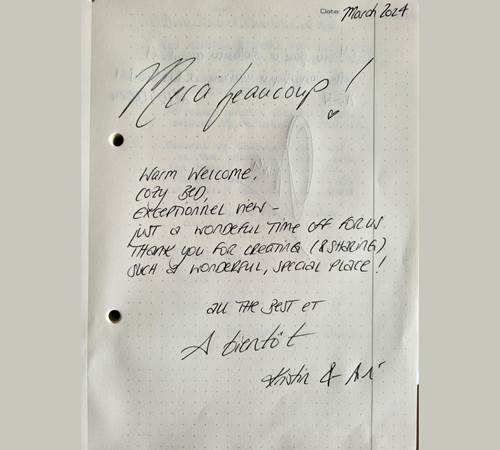 Date: March 2024
Merci beaucoup!
Warm Welcome,
Cozy Bed,
Exceptionnel view -
just a wondeful time off for us
Thank you for creating (& sharing)
such a wonderful, special place!
all the best et
A bientôt
Kristin &